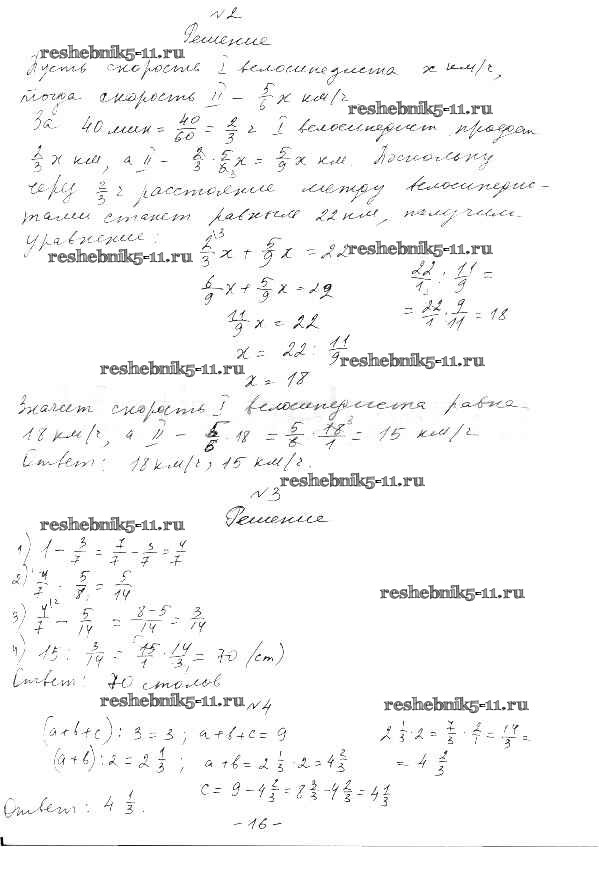 №2
Решение
reshebnik5-11.ru
Пусть скорость I велосипедиста x км/ч,
тогда скорость II – 5/6 x км/ч
reshebnik5-11.ru
За 40 мин = 40/60 = 2/3 ч I велосипедист проедет
2/3 x км, а II – 2/3 · 5/6 x = 5/9 x км. Поскольку
через 2/3 ч расстояние между велосипедис-
тами станет равным 22 км, получим
уравнение:
reshebnik5-11.ru
2/3 x + 5/9 x = 22
reshebnik5-11.ru
6/9 x + 5/9 x = 22
22/1 : 11/9 =
11/9 x = 22
= 22/1 · 9/11 = 18
x = 22 : 11/9
reshebnik5-11.ru
reshebnik5-11.ru
x = 18
Значит скорость I велосипедиста равна
18 км/ч, а II – 5/6 · 18 = 5/6 · 18/1 = 15 км/ч
Ответ: 18 км/ч; 15 км/ч.
reshebnik5-11.ru
№3
reshebnik5-11.ru
Решение
1) 1 – 3/7 = 7/7 – 3/7 = 4/7
2) 4/7 · 5/8 = 5/14
reshebnik5-11.ru
3) 4/7 – 5/14 = 8–5/14 = 3/14
4) 15 : 3/14 = 15/1 · 14/3 = 70 (ст)
Ответ: 70 столов
reshebnik5-11.ru
№4
reshebnik5-11.ru
(a+b+c) : 3 = 3 ; a+b+c = 9
2 1/3 · 2 = 7/3 · 2/1 = 14/3 =
(a+b) : 2 = 2 1/3 ; a+b = 2 1/3 · 2 = 4 2/3
= 4 2/3
c = 9 – 4 2/3 = 8 3/3 – 4 2/3 = 4 1/3
Ответ: 4 1/3.
– 16 –